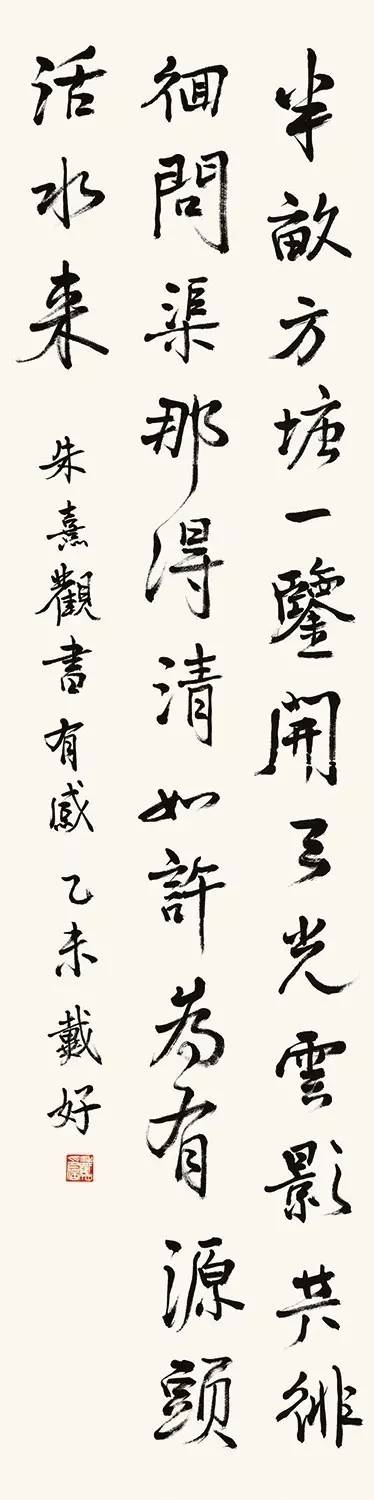 半畝方塘一鑒開天光雲影共徘
徊問渠那得清如許為有源頭
活水来
朱熹觀書有感 乙未 戴好